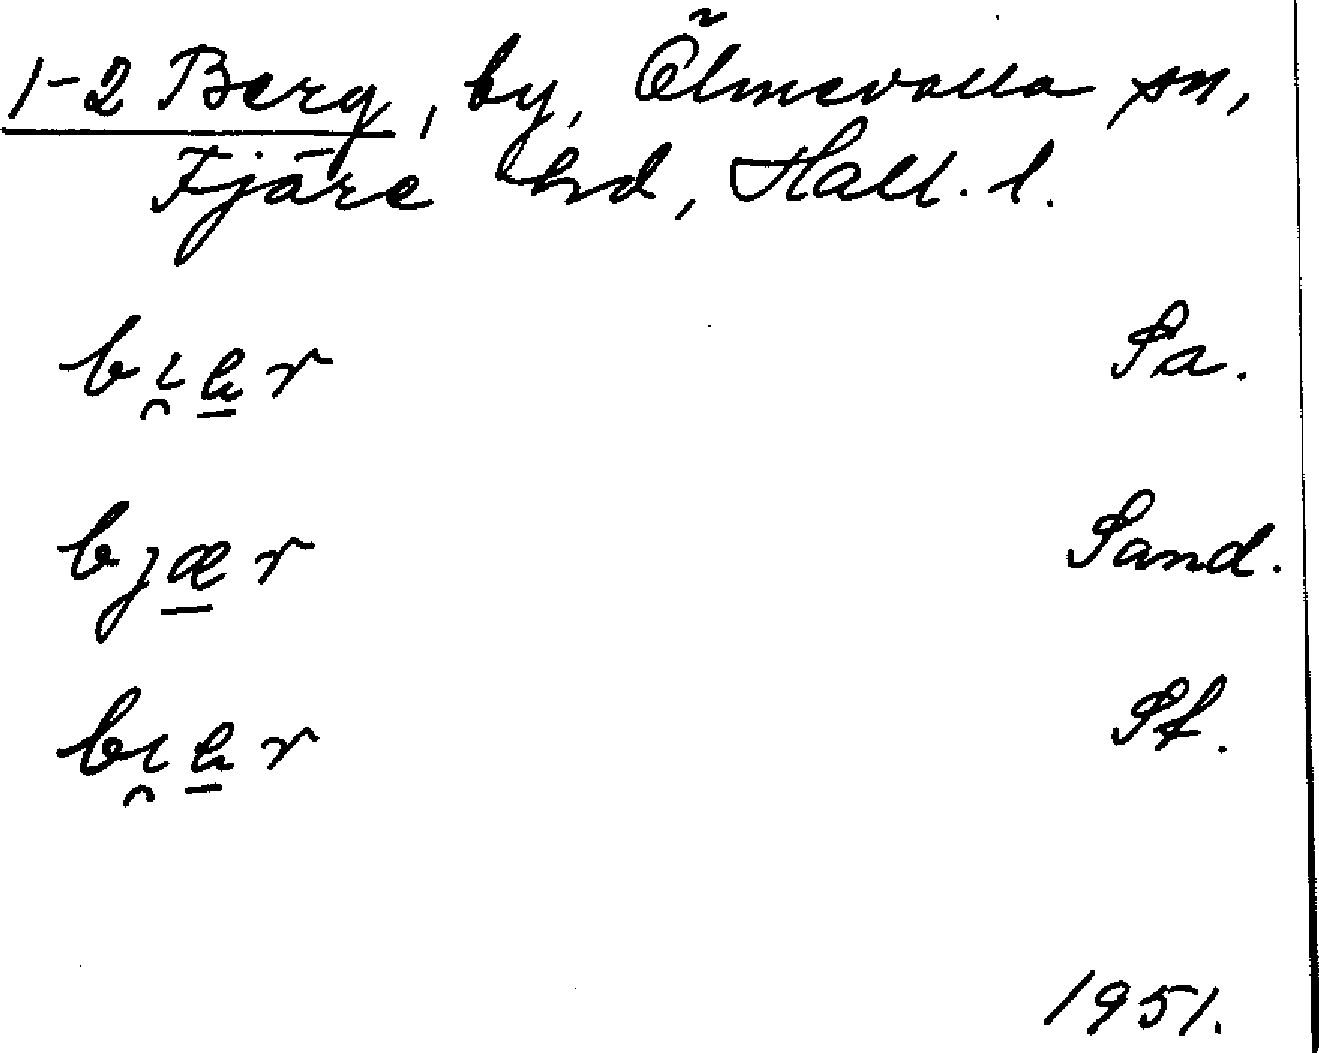 1-2 Berg, by, Ölmevalla sn,
Fjäre hd, Hall. l.
bı̯a̠r Sa.
bjæ̠r Sand.
bı̯a̠r St.
1951.